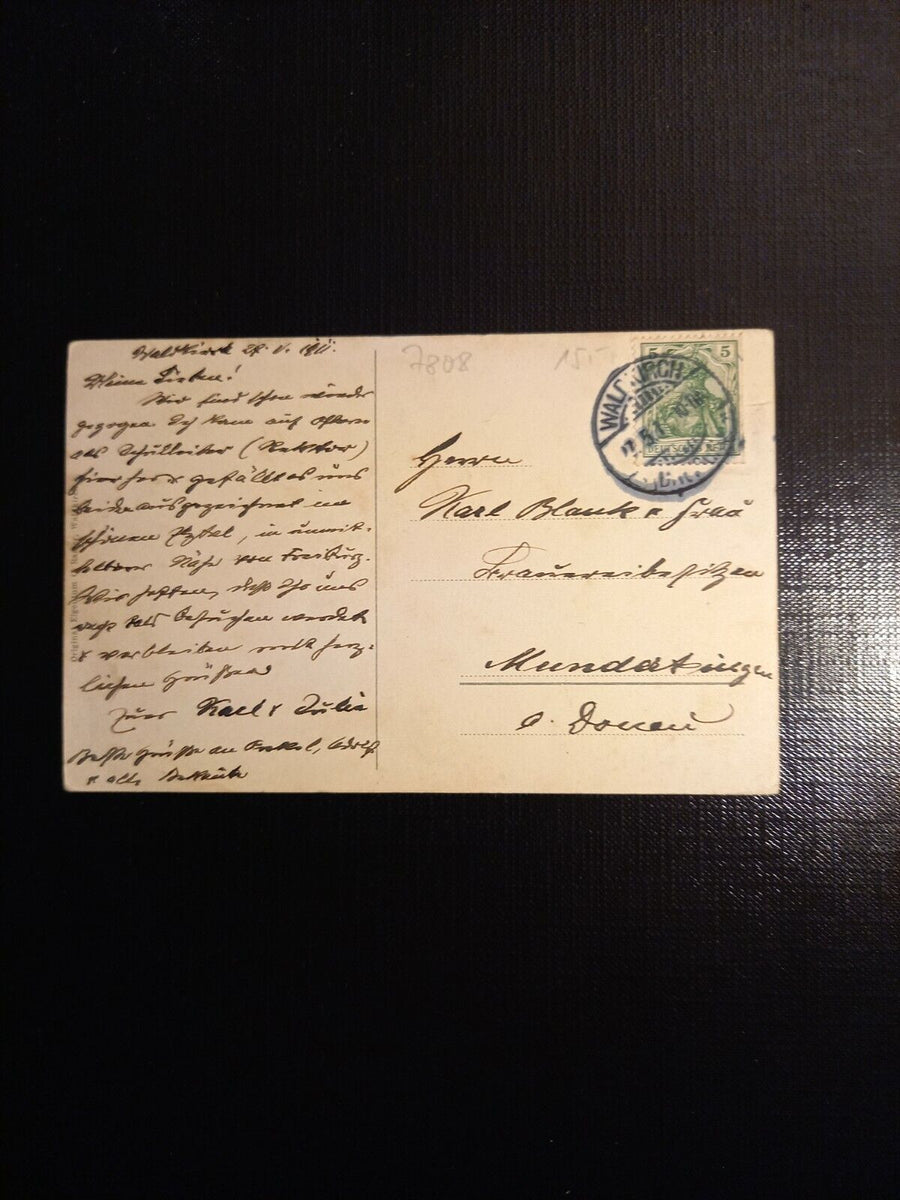 Waldkirch 27. V. 1911.
Meine Lieben!
Wir sind schon wieder
gezogen. Ich kam auf Ostern
als Schulleiter (Rektor)
hierher & gefällt es uns
beiden ausgezeichnet im
schönen Elztal, in unmit-
telbarer Nähe von Freiburg.
Wir hoffen, daß Ihr uns
auch bald besuchen werdet
& verbleiben mit herz-
lichen Grüßen
Karl & Julie
Beste Grüße an
& alle
7808
15.-
5 5
DEUTSCHES REICH
WALDKIRCH
Herrn
Karl Blank & Frau
Brauereibesitzer
Munderkingen
a. Donau
Original Eigentum